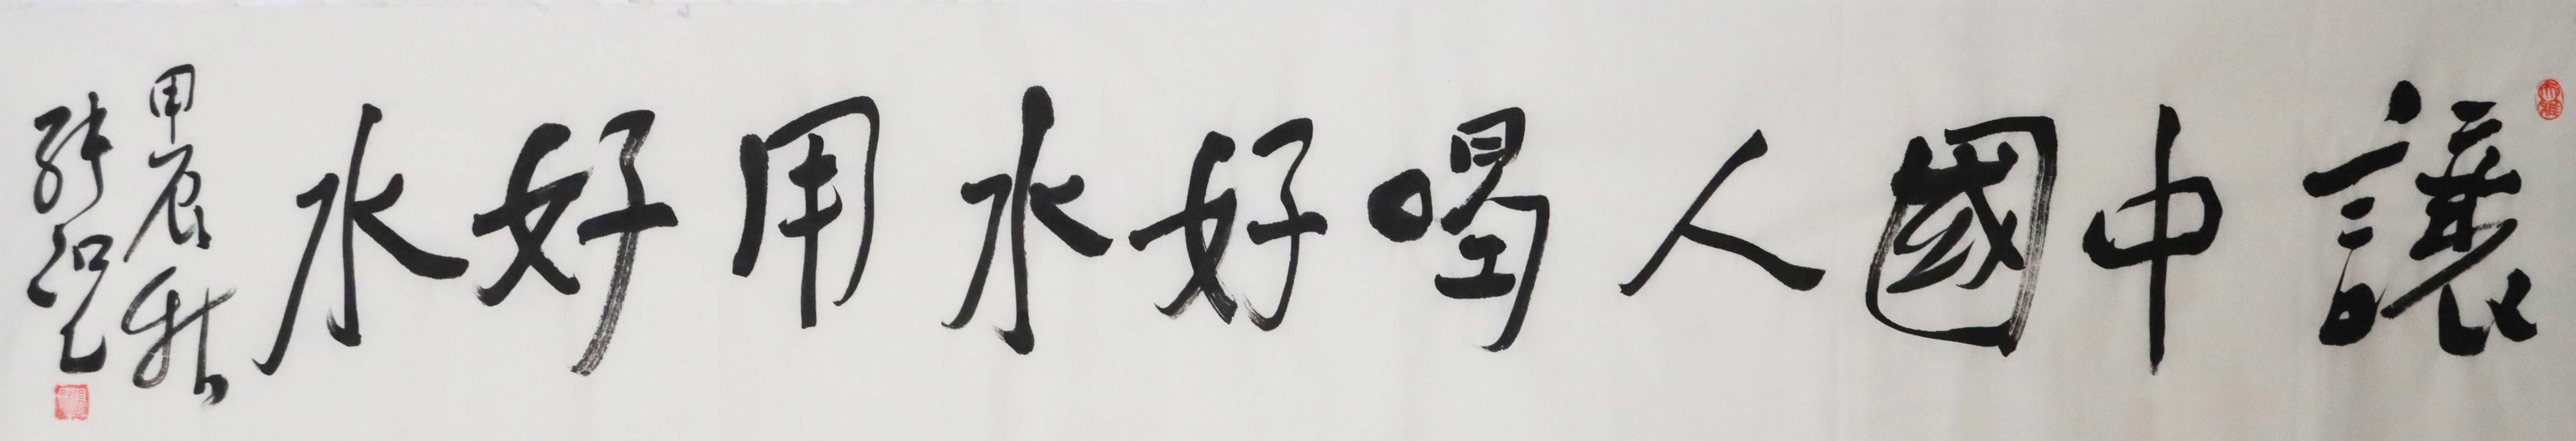 讓中國人喝好水用好水
甲辰秋